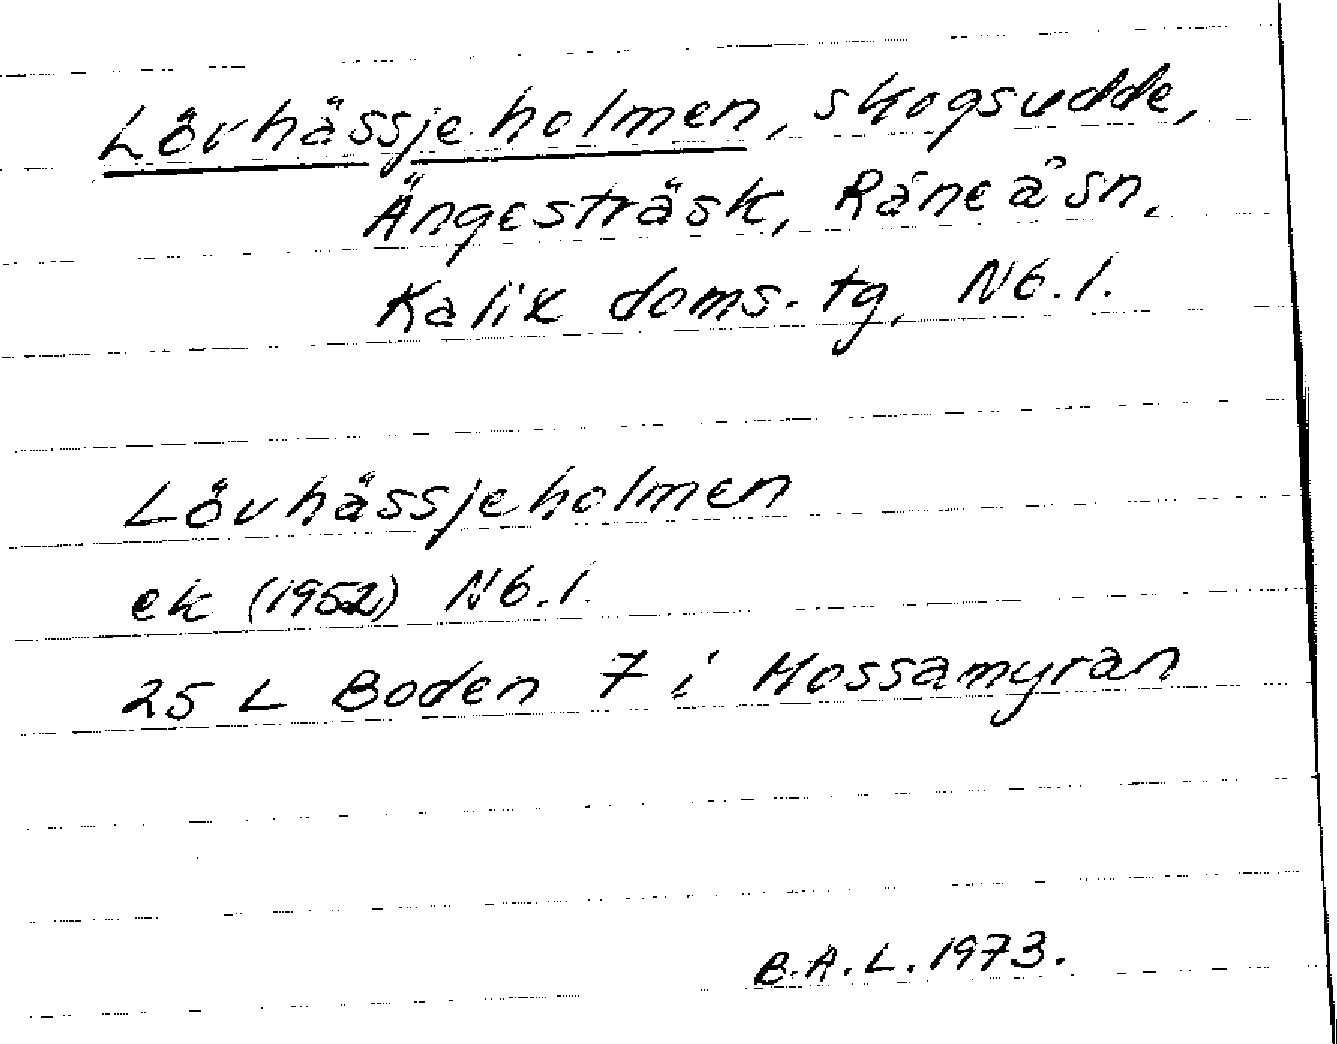 Lövhässjeholmen, skogsudde,
Ängesträsk, Råneå sn.
Kalix doms. tg, Nb. l.
Lövhässjeholmen
ek (1952) Nb. l.
25 L Boden 7 i Mossamyran
B.A.L. 1973.